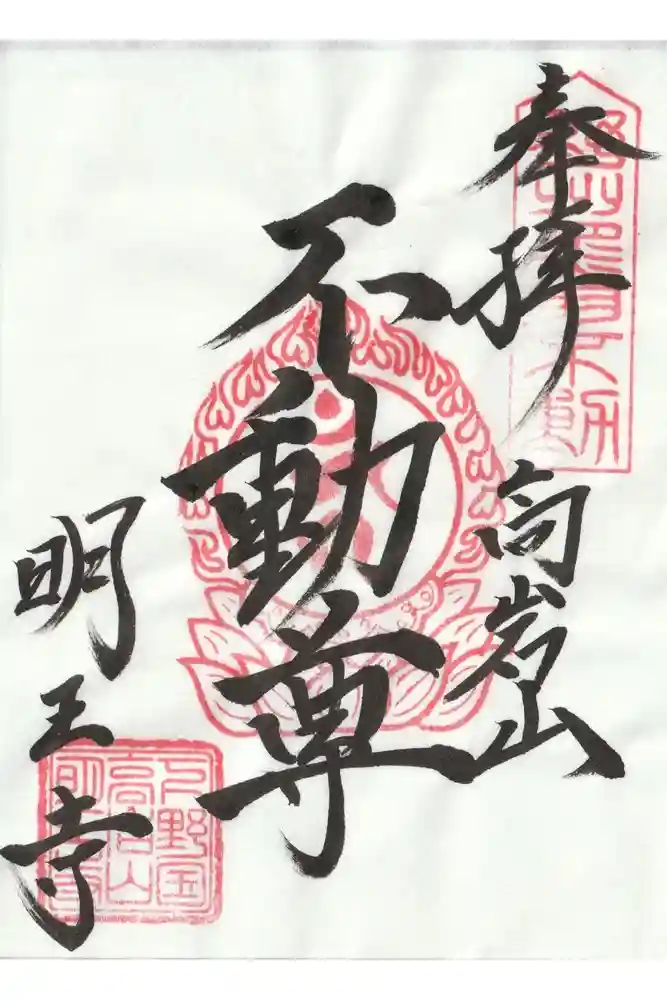 奉拝
高岩山
不動尊
明王寺
下野国
高岩山
明王寺